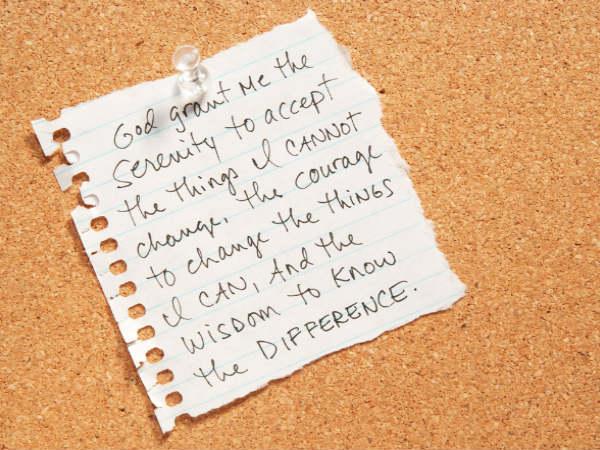 God grant me the
Serenity to accept
the things I CANNOT
change, the courage
to change the thiNGS
I CAN, AND the
WISDOM to KNOW
the DIFFERENCE.